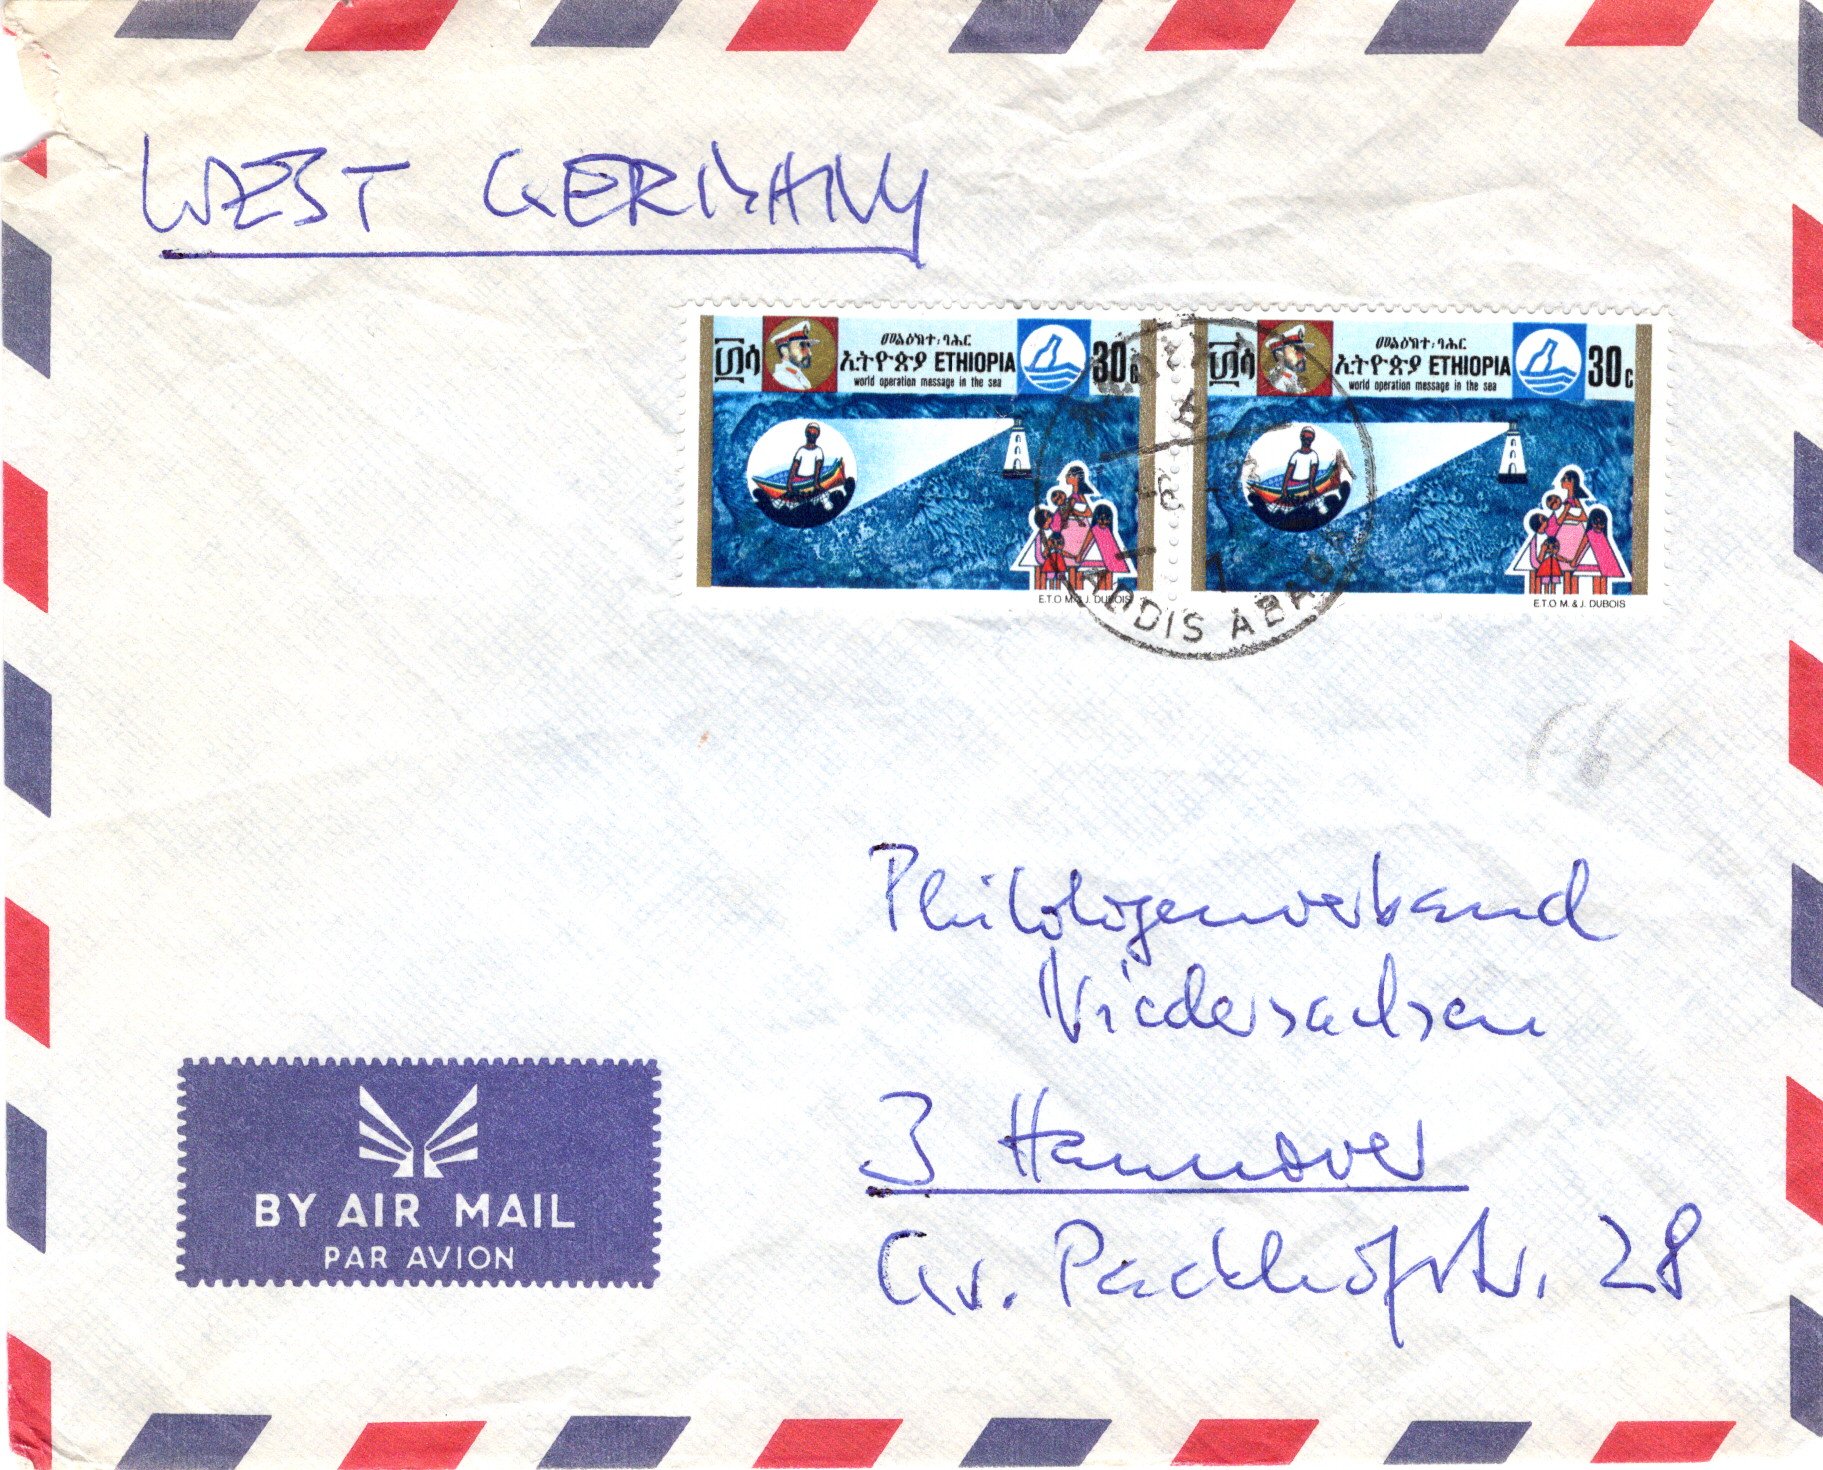 WEST GERMANY
፴ሳ
መልዕክተ፡ባሕር
ኢትዮጵያ ETHIOPIA
world operation message in the sea
30c
E.T.O M. & J. DUBOIS
፴ሳ
መልዕክተ፡ባሕር
ኢትዮጵያ ETHIOPIA
world operation message in the sea
30c
E.T.O M. & J. DUBOIS
ADDIS ABABA
Philologenverband
Niedersachsen
3 Hannover
Gr. Packhofstr. 28
BY AIR MAIL
PAR AVION